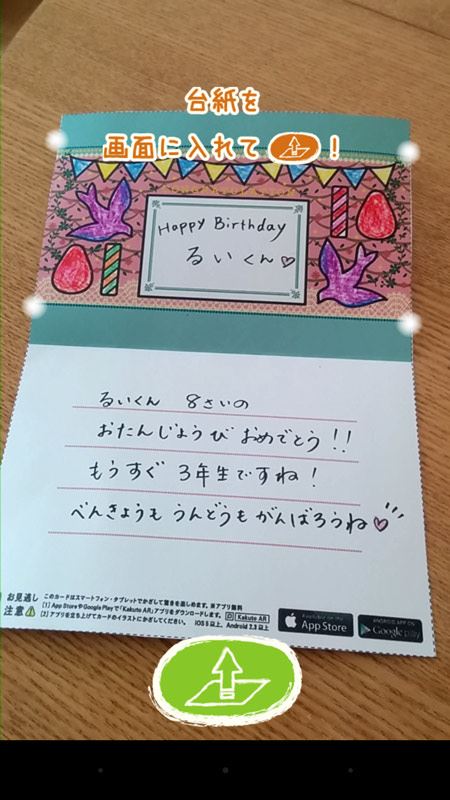 台紙を
画面に入れて！
Happy Birthday
るいくん♡
るいくん 8さいの
おたんじょうび おめでとう!!
もうすぐ 3年生ですね!
べんきょうも うんどうも がんばろうね♡
お見逃し
注意
このカードはスマートフォン・タブレットでかざして驚きを楽しめます。※アプリ無料
[1] App StoreやGoogle Playで「Kakuto AR」アプリをダウンロードします。 Kakuto AR
[2] アプリを立ち上げてカードのイラストにかざしてください。 iOS 5 以上、Android 2.3 以上
Available on the
App Store
ANDROID APP ON
Google play